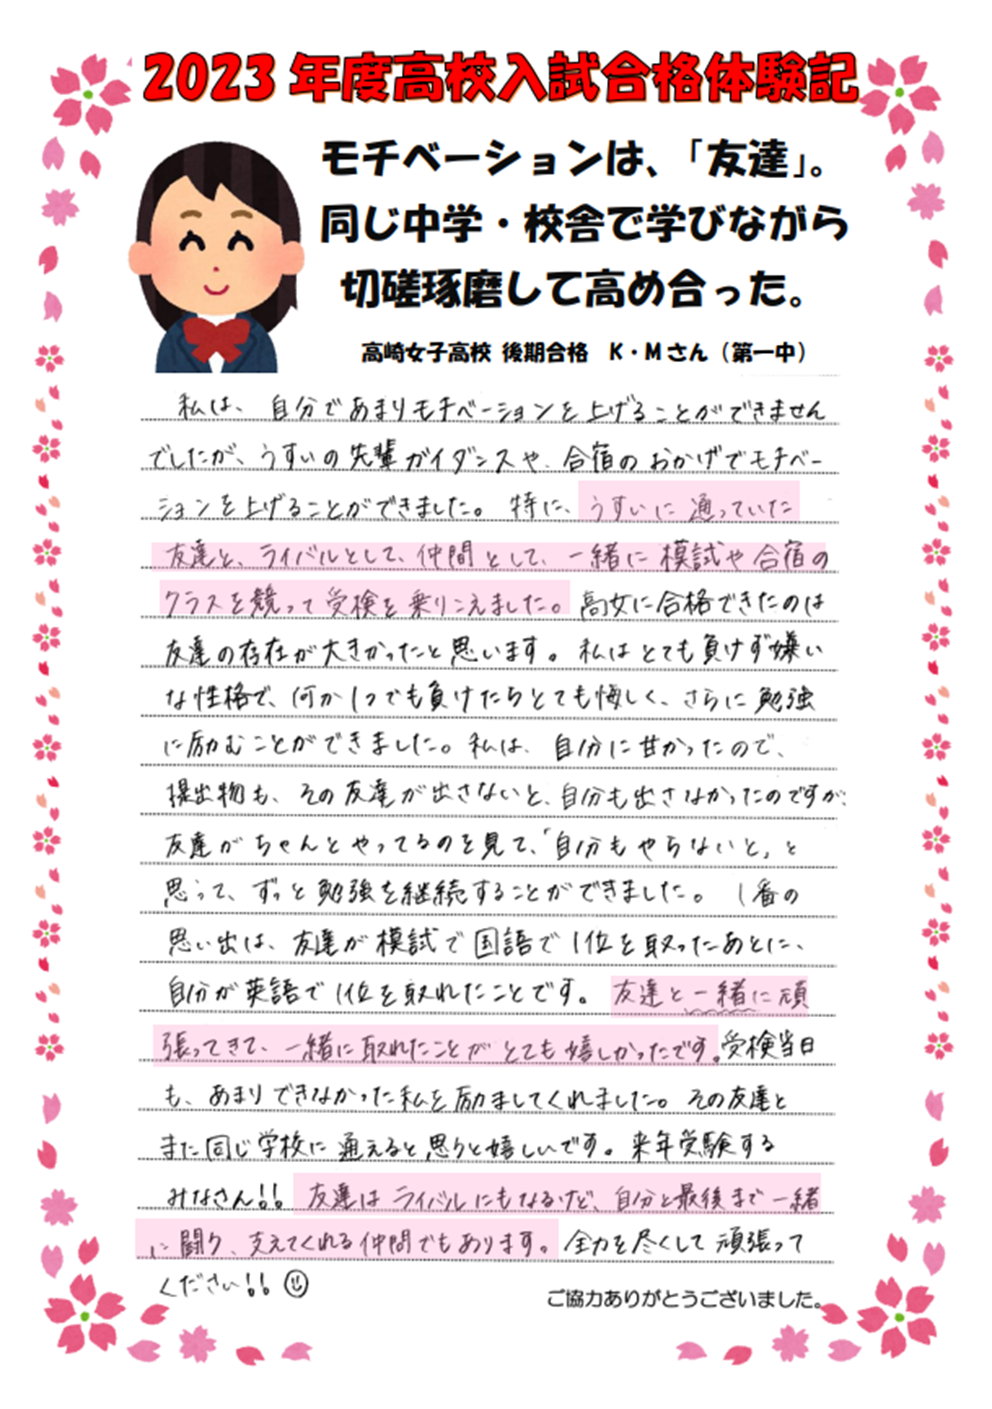 2023年度高校入試合格体験記
モチベーションは、「友達」。
同じ中学・校舎で学びながら
切磋琢磨して高め合った。
高崎女子高校 後期合格 K・Mさん（第一中）
私は、自分であまりモチベーションを上げることができません
でしたが、うすいの先輩ガイダンスや、合宿のおかげでモチベー
ションを上げることができました。特に、うすいに通っていた
友達と、ライバルとして、仲間として、一緒に模試や合宿の
クラスを競って受検を乗りこえました。高女に合格できたのは
友達の存在が大きかったと思います。私はとても負けず嫌い
な性格で、何か1つでも負けたらとても悔しく、さらに勉強
に励むことができました。私は、自分に甘かったので、
提出物も、その友達が出さないと、自分も出さなかったのですが、
友達がちゃんとやってるのを見て、「自分もやらないと」と
思って、ずっと勉強を継続することができました。1番の
思い出は、友達が模試で国語で1位を取ったあとに、
自分が英語で1位を取れたことです。友達と一緒に頑
張ってきて、一緒に取れたことがとても嬉しかったです。受検当日
も、あまりできなかった私を励ましてくれました。その友達と
また同じ学校に通えると思うと嬉しいです。来年受験する
みなさん!! 友達はライバルにもなるけど、自分と最後まで一緒
に闘う、支えてくれる仲間でもあります。全力を尽くして頑張って
ください!!
ご協力ありがとうございました。